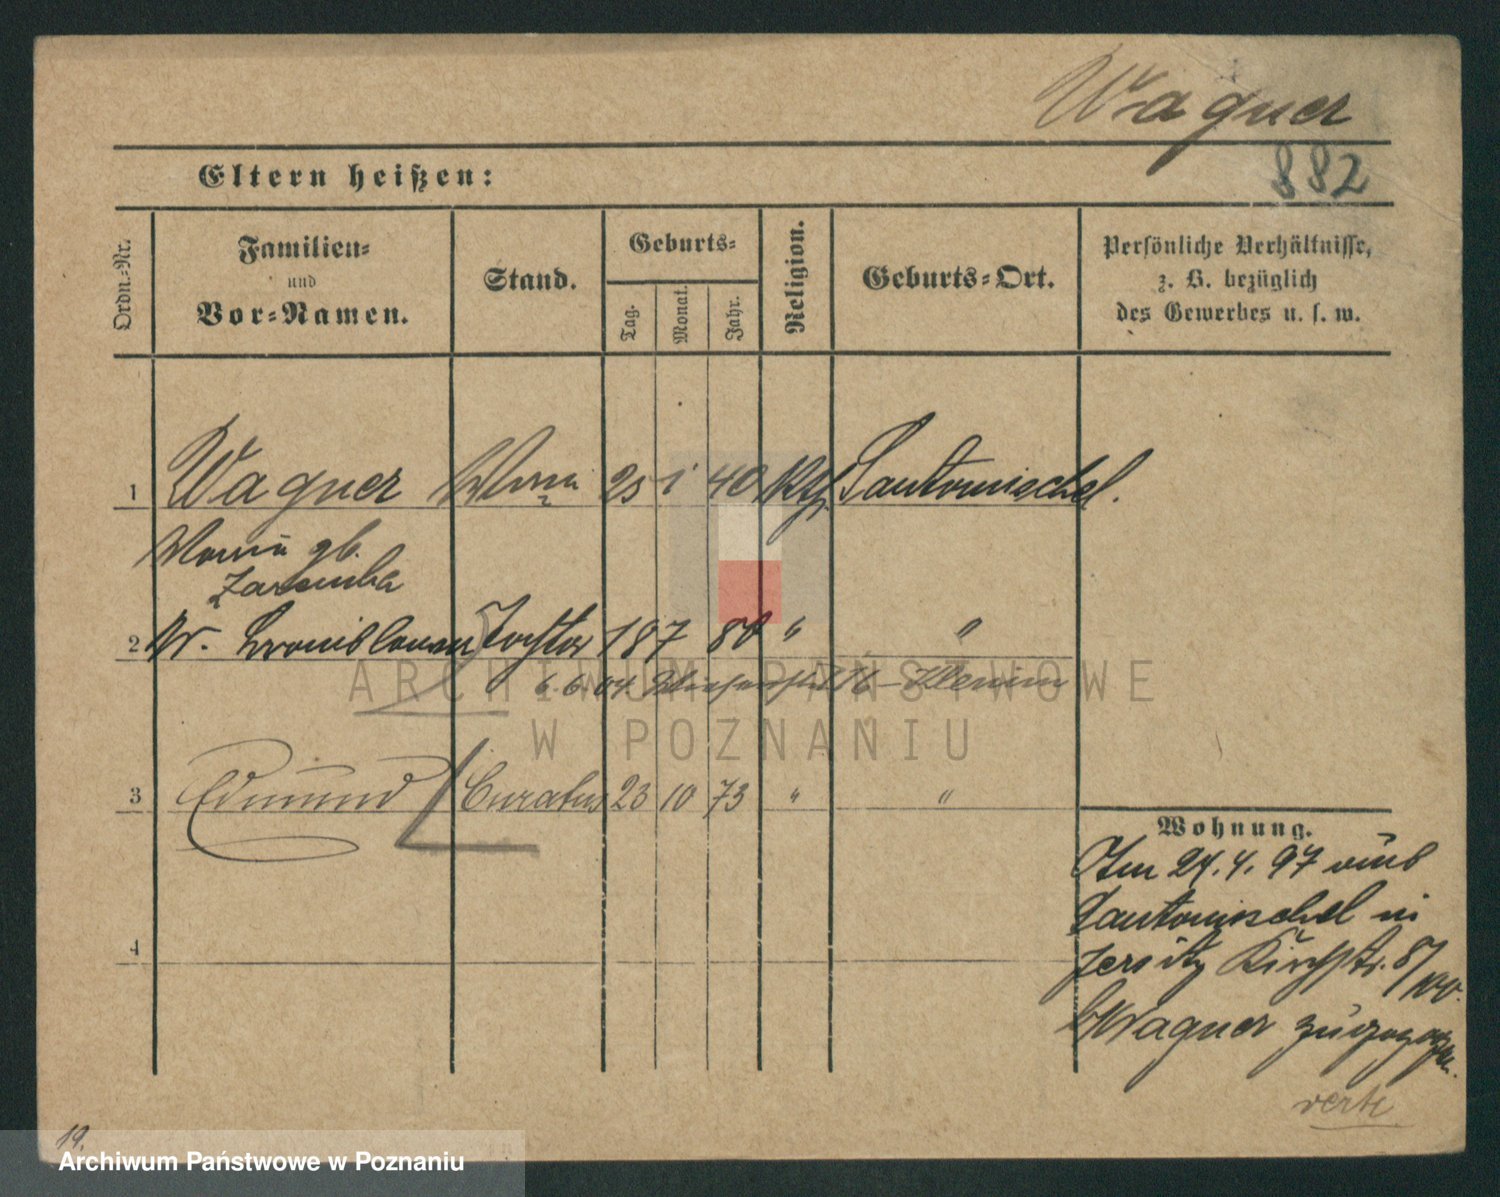 Wagner
882
Eltern heißen:
Ordn.-Nr.
Familien-
und
Vor-Namen.
Stand.
Geburts-
Tag.
Monat.
Jahr.
Religion.
Geburts-Ort.
Persönliche Verhältnisse,
z. B. bezüglich
des Gewerbes u. s. w.
1 Wagner 25 1 40 Kth. Santomischel.
gb.
Zaremba
2 W. Bronislawa Tochter 18 7 80 " "
6.6.04
3 Edmund Curatus 23 10 73 " "
4
Wohnung.
Am 24.4.97 aus
Santomischel in
Jersitz Kirchstr. 8/
b/Wagner zugezogen.
verte
19.
ARCHIWUM PAŃSTWOWE
W POZNANIU
Archiwum Państwowe w Poznaniu